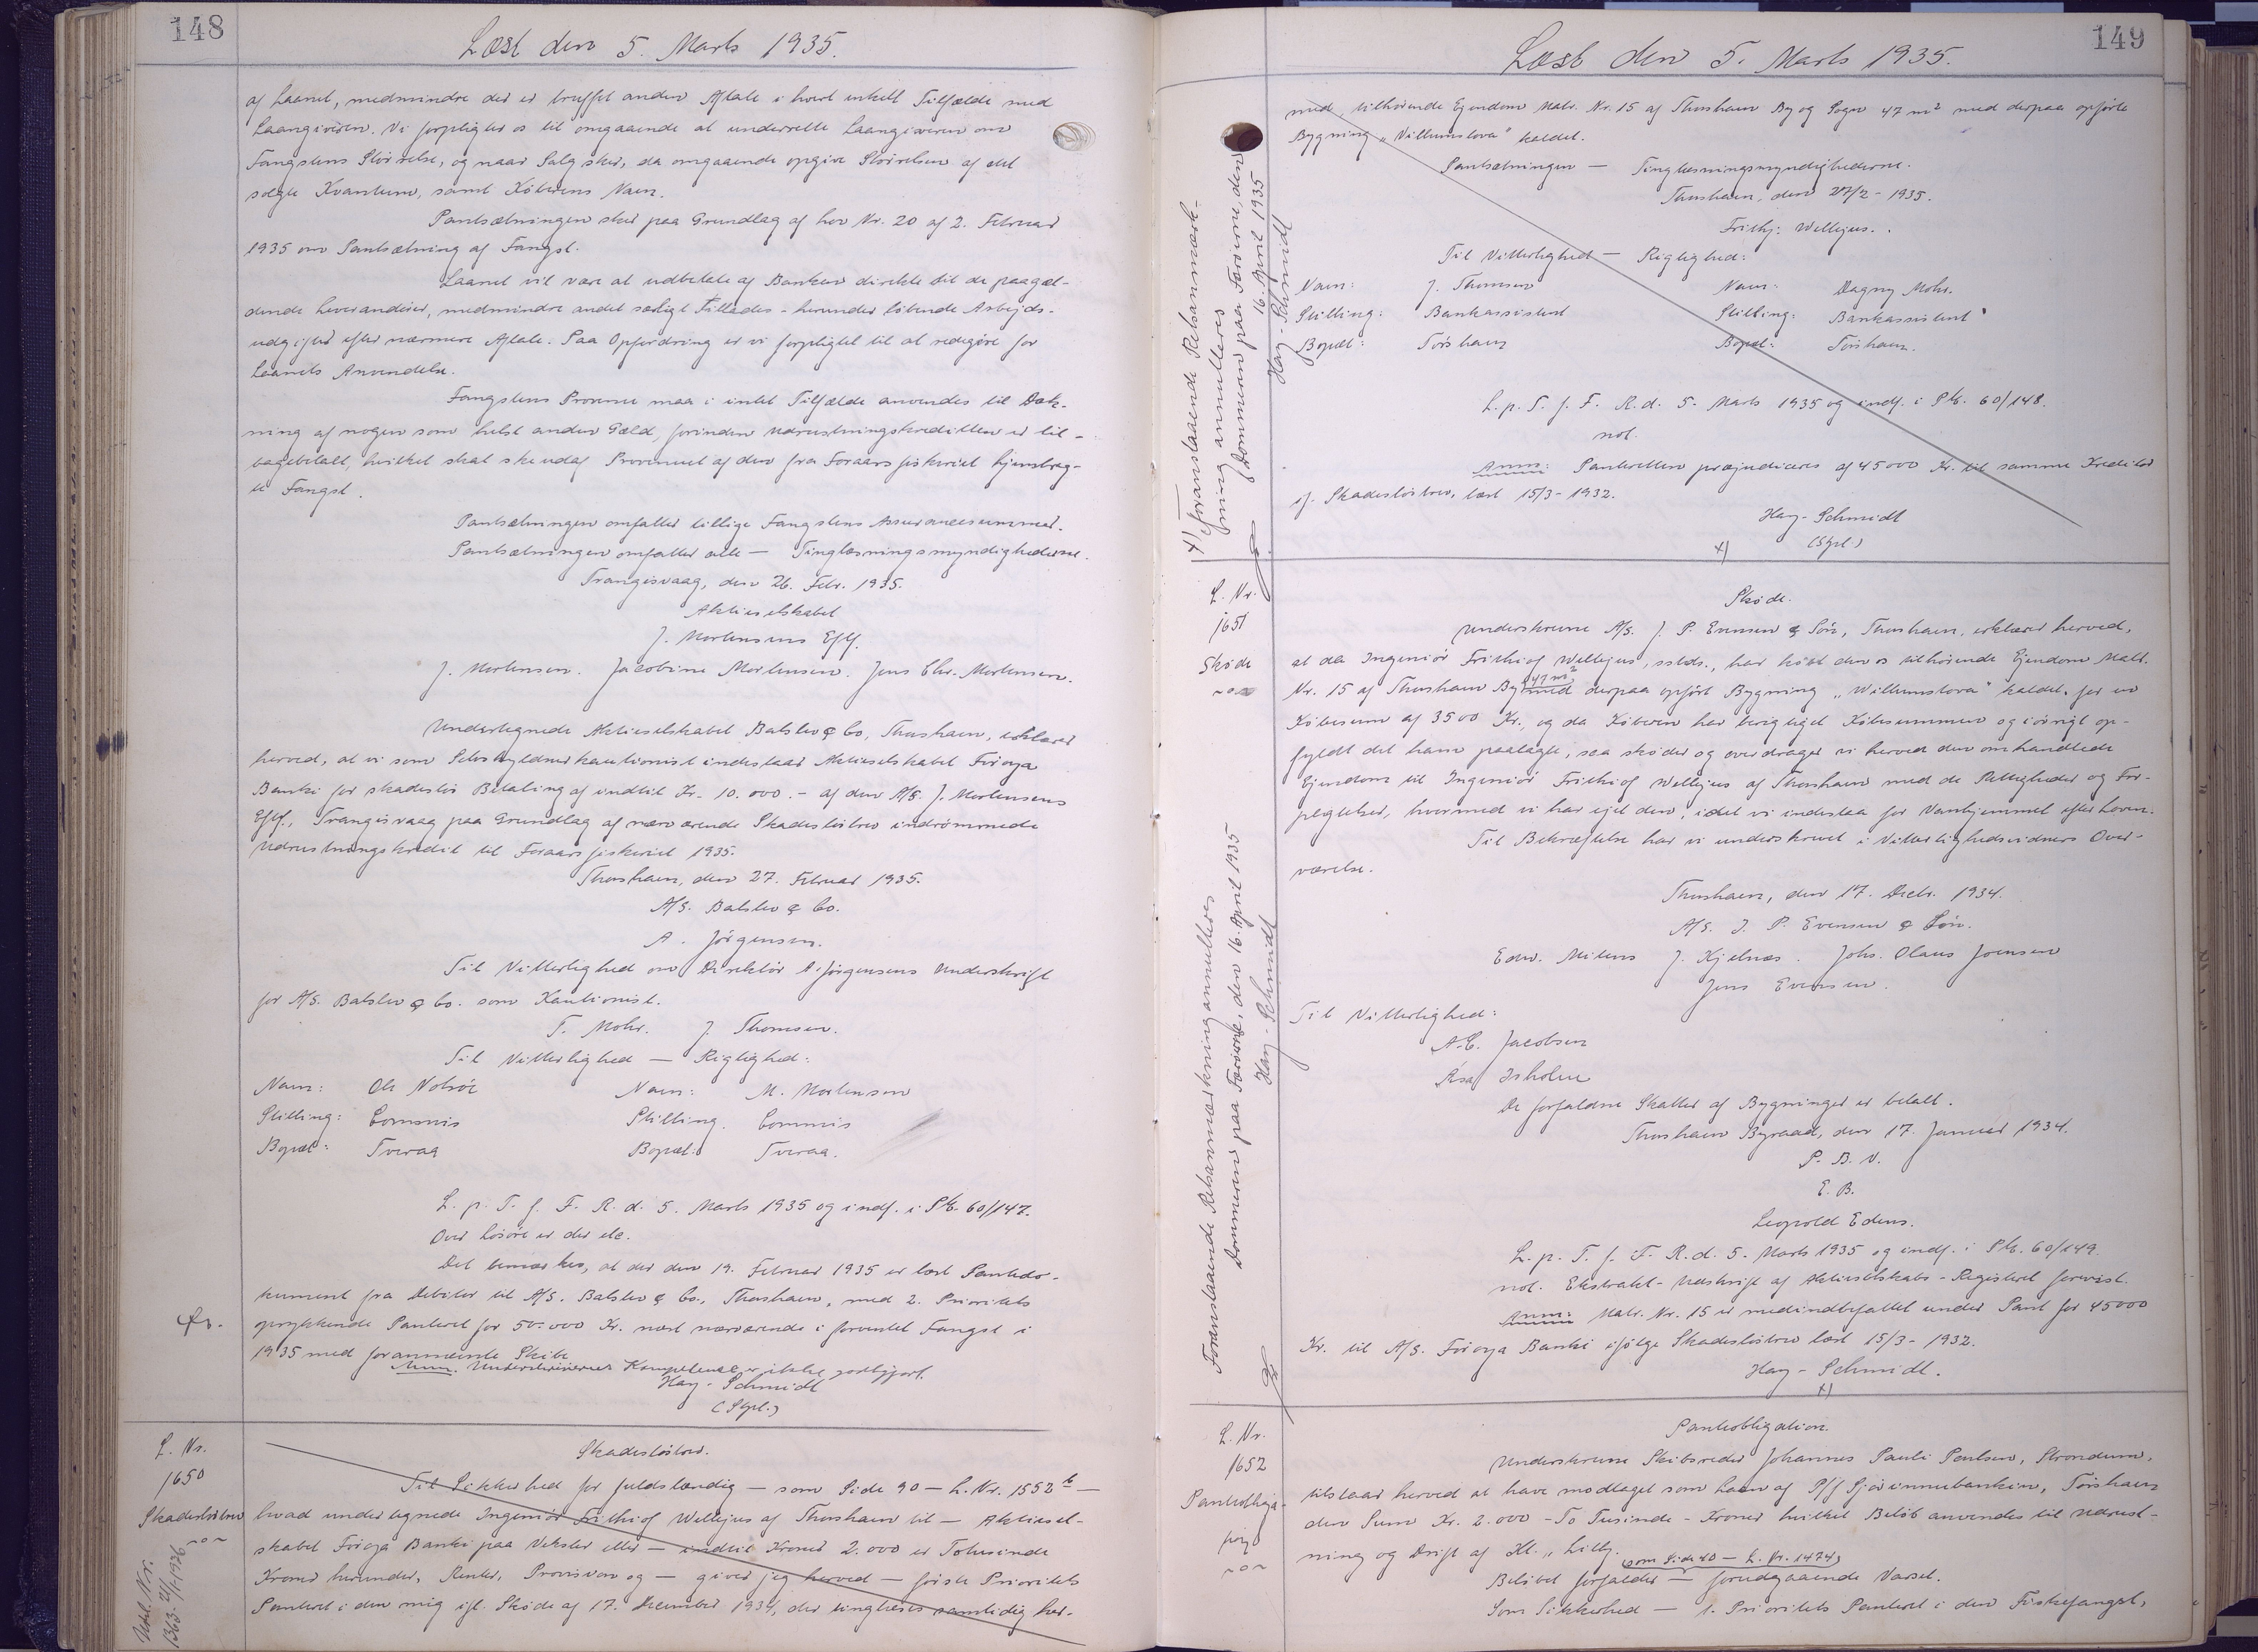 148
Læst den 5. Marts 1935.
af Laanet, medmindre der er truffet anden Aftale i hvert enkelt Tilfælde med
Laangiveren. Vi forpligter os til omgaaende at underrette Laangiveren om
Fangstens Størrelse, og naar Salg sker, da omgaaende opgive Størrelsen af det
solgte Kvantum, samt Køberens Navn.
Pantsætningen sker paa Grundlag af Lov Nr. 20 af 2. Februar
1935 om Pantsætning af Fangst.
Laanet vil være at udbetale af Banken direkte til de paagæl-
dende Leverandører, medmindre andet særligt tillades - herunder løbende Arbejds-
udgifter efter nærmere Aftale. Paa Opfordring er vi forpligtet til at redegøre for
Laanets Anvendelse.
Fangstens Provenu maa i intet Tilfælde anvendes til Dæk-
ning af nogen som helst anden Gæld, forinden Udrustningskreditten er til-
bagebetalt, hvilket skal ske udaf Provenuet af den fra Foraarsfiskeriet hjembrag-
te Fangst.
Pantsætningen omfatter tillige Fangstens Assurancesummer.
Pantsætningen omfatter alle — Tinglæsningsmyndighederne.
Trangisvaag, den 26. Febr. 1935.
Aktieselskabet
J. Mortensens Eftf.
J. Mortensen. Jacobine Mortensen. Jens Chr. Mortensen.
Undertegnede Aktieselskabet Balslev & Co, Thorshavn, erklærer
herved, at vi som Selvskyldnerkautionist indestaar Aktieselskabet Føroya
Banki for skadesløs Betaling af indtil Kr. 10.000.- af den A/S. J. Mortensens
Eftf., Trangisvaag paa Grundlag af nærværende Skadesløsbrev indrømmede
Udrustningskredit til Foraarsfiskeriet 1935.
Thorshavn, den 27. Februar 1935.
A/S. Balslev & Co.
A. Jørgensen.
Til Vitterlighed om Direktør A. Jørgensens Underskrift
for A/S. Balslev & Co. som Kautionist.
T. Mohr. J. Thomsen.
Til Vitterlighed — Rigtighed:
Navn: Ole Nolsøe Navn: M. Mortensen
Stilling: Commis Stilling. Commis
Bopæl: Tveraa Bopæl: Tveraa.
L. p. T. f. F. R. d. 5. Marts 1935 og indf. i Ptb. 60/147.
Over Løsøre er der ele.
Det bemærkes, at der den 19. Februar 1935 er læst Pantedo-
kument fra Debitor til A/S. Balslev & Co., Thorshavn, med 2. Prioritets
oprykkende Panteret for 50.000 Kr. næst nærværende i forventet Fangst i
1935 med forannævnte Skibe
Anm. Underskrivernes Kompetence er ikke godtgjort.
Hay-Schmidt
(Stpl.)
L. Nr.
1650
Skadesløsbrev
~o~
Udsl. Nr.
1363. 21/1-1936.
Skadesløsbrev.
Til Sikkerhed for fuldstændig — som Side 90 — L. Nr. 1552 b —
hvad undertegnede Ingeniør Frithiof Wellejus af Thorshavn til — Aktiesel-
skabet Føroya Banki paa Veksler eller — indtil Kroner 2.000 er Totusinde
Kroner herunder, Renter, Provision og — giver jeg herved — første Prioritets
Panteret i den mig ifl. Skøde af 17. December 1934, der tinglæses samtidig her-
149
Læst den 5. Marts 1935.
med tilhørende Ejendom Matr. Nr. 15 af Thorshavn By og Sogn 47 m² med derpaa opførte
Bygning „Villumstova" kaldet.
Pantsætningen — Tinglæsningsmyndighederne.
Thorshavn, den 27/2 - 1935.
Frithj: Wellejus.
Til Vitterlighed — Rigtighed:
Navn: J. Thomsen Navn: Dagny Mohr.
Stilling: Bankassistent Stilling: Bankassistent
Bopæl: Tórshavn Bopæl: Tórshavn.
L. p. T. f. F. R. d. 5. Marts 1935 og indf. i Ptb. 60/148.
not.
Anm: Panteretten præjudiceres af 45000 Kr. til samme Kreditor
if. Skadesløsbrev, læst 15/3 - 1932.
Hay-Schmidt
(Stpl.)
x)
x) Foranstaaende Retsanmærk-
ning annulleres
Dommeren paa Færøerne, den
16. April 1935
Hay-Schmidt
L. Nr.
1651
Skøde
~o~
Skøde.
Underskrevne A/S. J. P. Evensen & Søn, Thorshavn, erklærer herved,
at da Ingeniør Frithiof Wellejus, sstds., har købt den os tilhørende Ejendom Matr.
Nr. 15 af Thorshavn By (47 m²) med derpaa opført Bygning „Willumstova" kaldet, for en
Købesum af 3500 Kr., og da Køberen har berigtiget Købesummen og iøvrigt op-
fyldt det ham paalagte, saa skøder og overdrager vi herved den omhandlede
Ejendom til Ingeniør Frithiof Wellejus af Thorshavn med de Rettigheder og For-
pligtelser, hvormed vi har ejet den, idet vi indestaa for Vanhjemmel efter Loven.
Til Bekræftelse har vi underskrevet i Vitterlighedsvidners Over-
værelse.
Thorshavn, den 17. Decbr. 1934.
A/S. J. P. Evensen & Søn.
Edw. Mitens J. Kjølnæs. Johs. Olaus Joensen
Jens Evensen.
Til Vitterlighed:
A. C. Jacobsen
Ása Isholm
De forfaldne Skatter af Bygninger er betalt.
Thorshavn Byraad, den 17. Januar 1934.
P. B. V.
E. B.
Leopold Edens.
L. p. T. f. F. R. d. 5. Marts 1935 og indf. i Ptb. 60/149.
not. Ekstrakt-Udskrift af Aktieselskabs-Registeret forevist.
Anm: Matr. Nr. 15 er medindbefattet under Pant for 45000
Kr. til A/S. Føroya Banki ifølge Skadesløsbrev læst 15/3 - 1932.
Hay-Schmidt.
x)
Foranstaaende Retsanmærkning annulleres
Dommeren paa Færøerne, den 16. April 1935
Hay-Schmidt
L. Nr.
1652
Panteobliga-
tion
~o~
Panteobligation.
Underskrevne Skibsreder Johannes Pauli Poulsen, Strondum,
tilstaar herved at have modtaget som Laan af P/f Sjóvinnubankin, Tórshavn
den Sum Kr. 2.000 - To Tusinde - Kroner hvilket Beløb anvendes til Udrust-
ning og Drift af Kt. „Lilly.
(som Side 40 — L. Nr. 1474)
Beløbet forfalder — forudgaaende Varsel.
Som Sikkerhed — 1. Prioritets Panteret i den Fiskefangst,